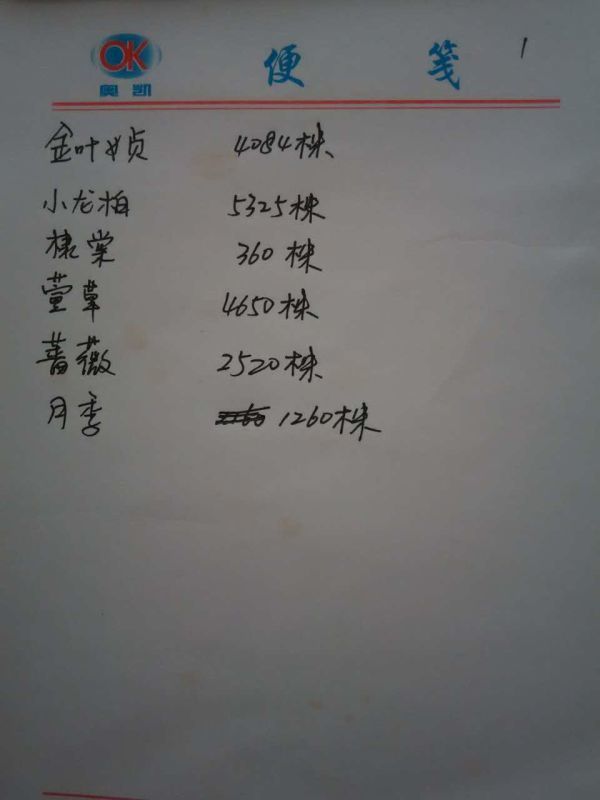 OK
奥凯
便 笺
1
金叶女贞 4084株
小龙柏 5325株
棣棠 360株
萱草 4650株
蔷薇 2520株
月季 1260株